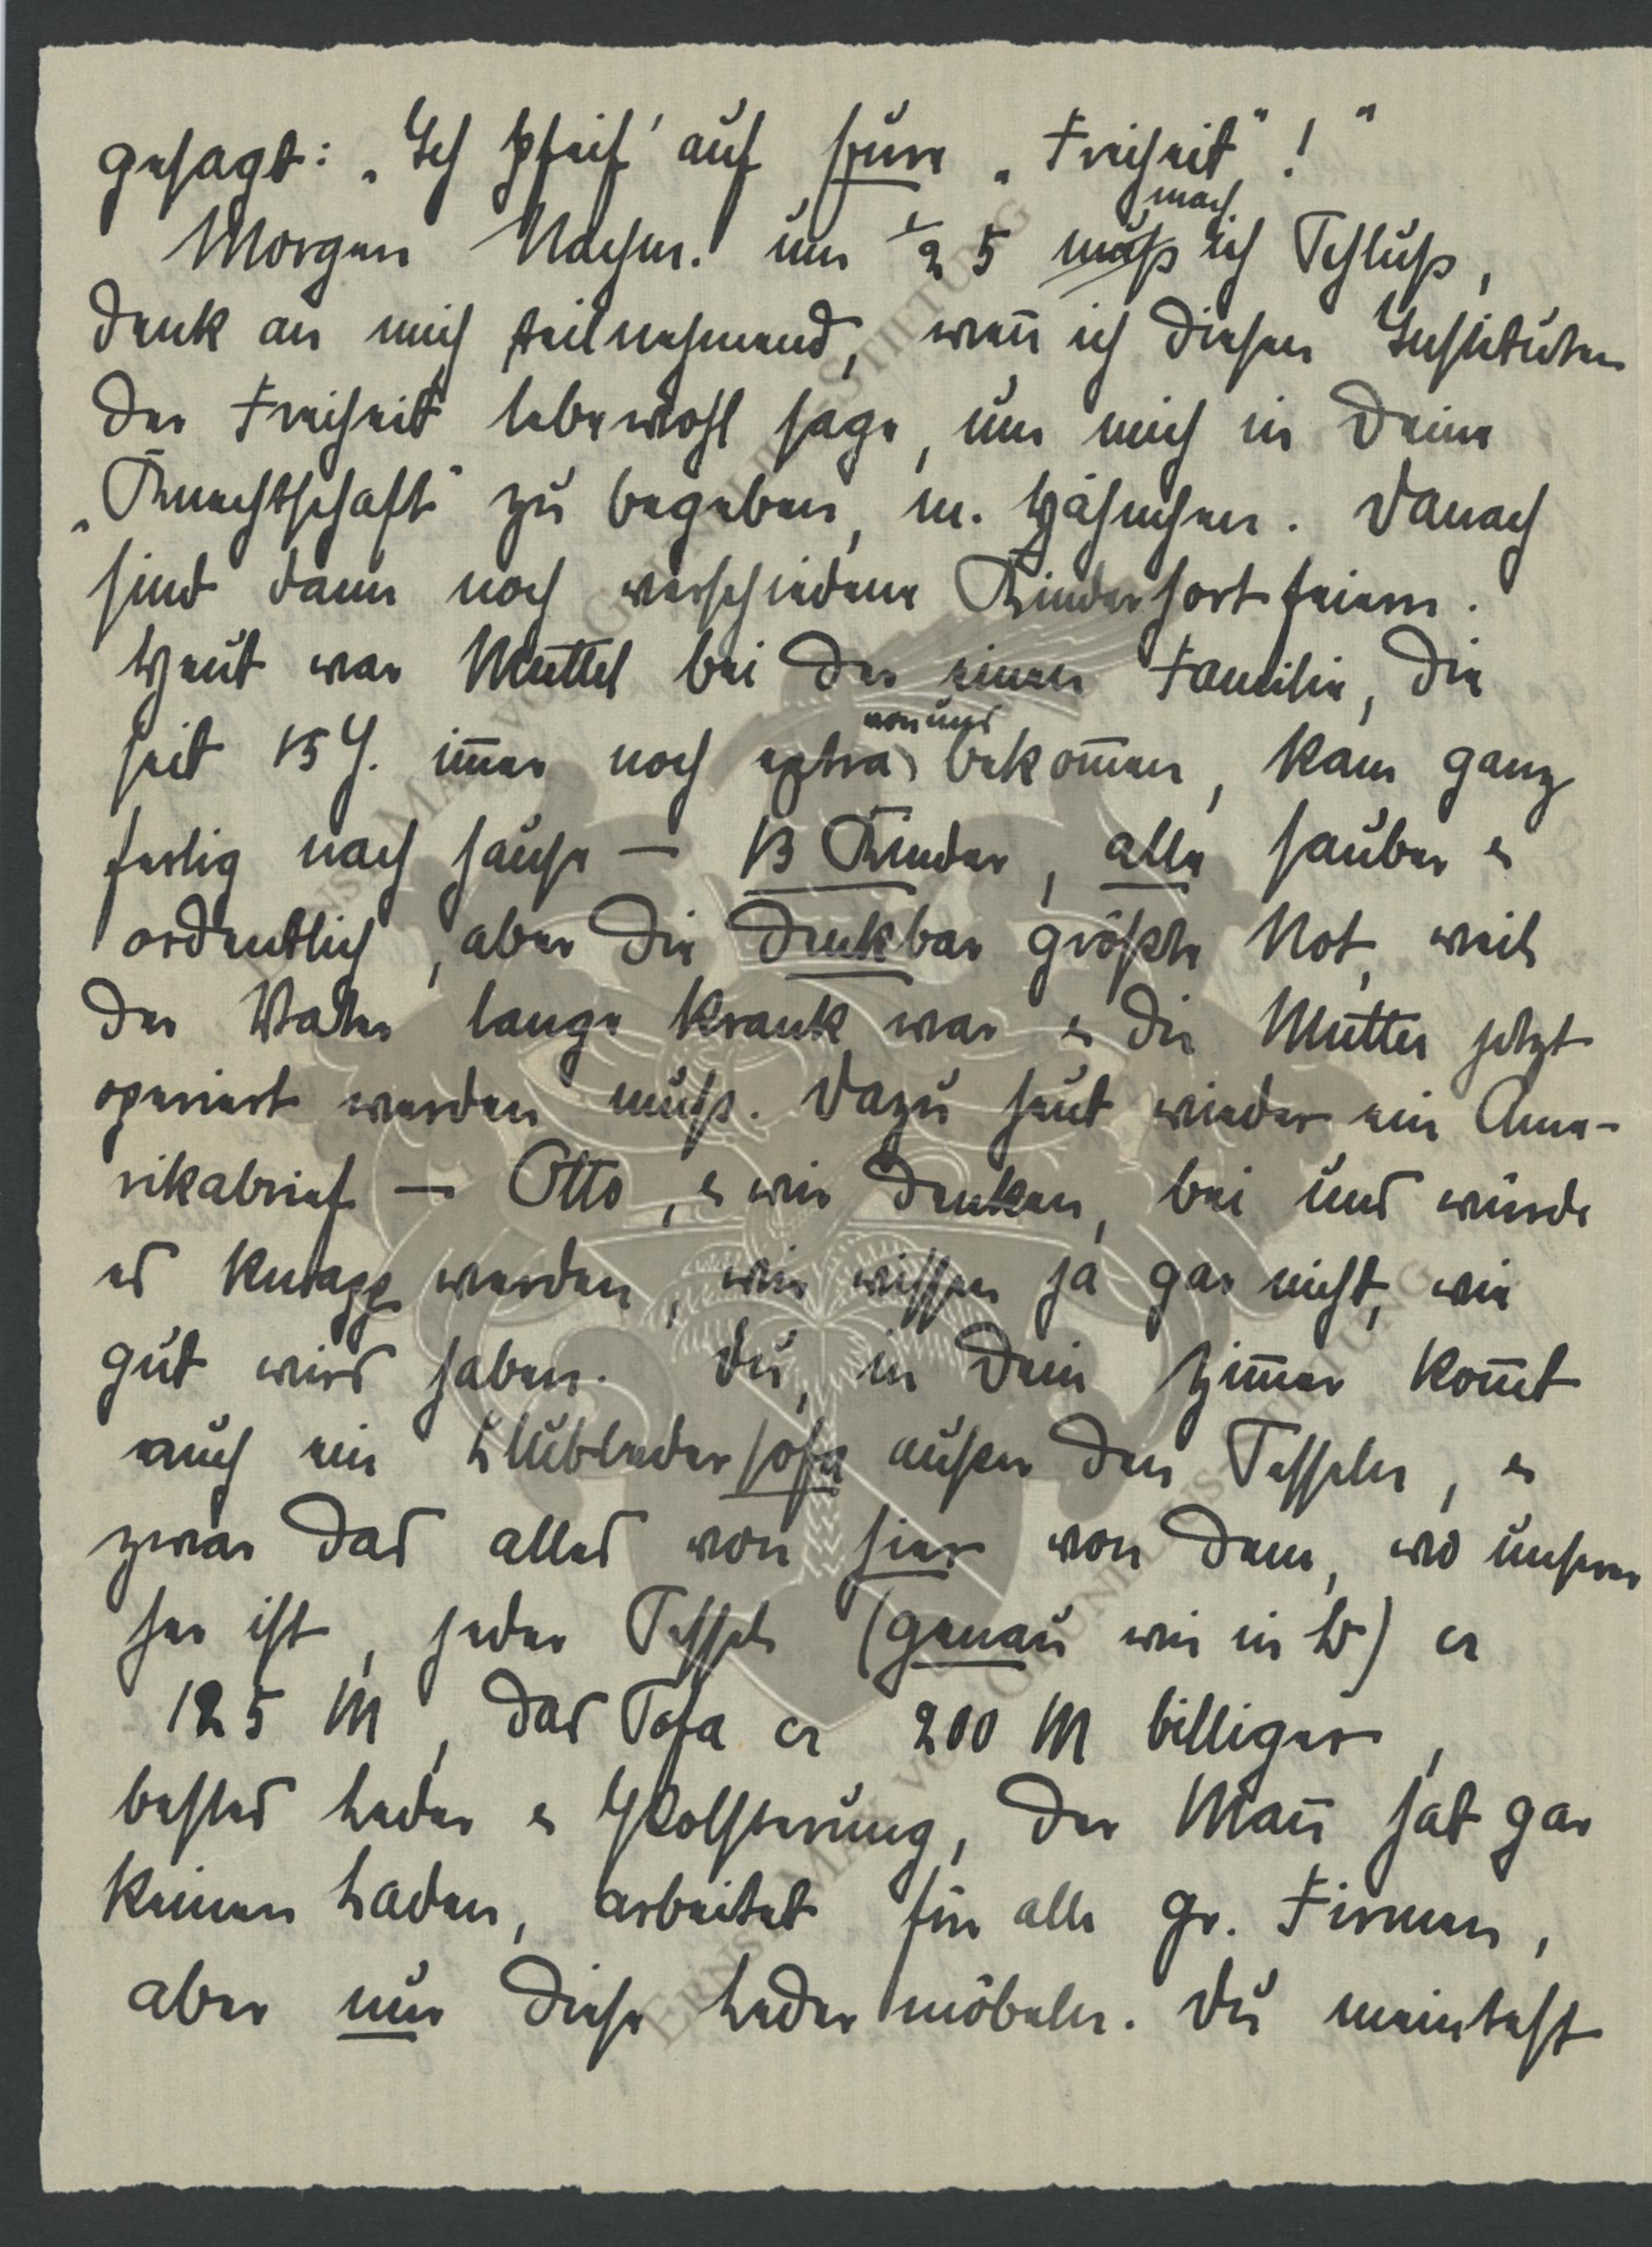 gesagt: „Ich pfeif' auf eure „Freiheit"!"
Morgen Nachm. um ½ 5 mach ich Schluß,
denk an mich teilnehmend, wenn ich diesen Instituten
der Freiheit lebewohl sage, um mich in Deine
„Knechtschaft" zu begeben, m. Hähnchen. Danach
sind dann noch verschiedene Kinderhortfeiern.
Heut war Muttel bei der einen Familie, die
seit 15 J. immer noch extra von uns bekommen, kam ganz
fertig nach hause – 13 Kinder, alle sauber u
ordentlich, aber die denkbar größte Not, weil
der Vater lange krank war u die Mutter jetzt
operiert werden muß. Dazu heut wieder ein Ame-
rikabrief – Otto, u wir denken, bei uns würde
es knapp werden, wir wissen ja gar nicht, wie
gut wirs haben. Du, in Dein Zimmer kommt
auch ein Klubledersofa außer den Sesseln, u
zwar das alles von hier von dem, wo unserer
her ist, jeder Sessel (genau wie in W) ca
125 M, das Sofa ca 200 M billiger,
bestes Leder u Polsterung, der Mann hat gar
keinen Laden, arbeitet für alle gr. Firmen,
aber nur diese Ledermöbeln. Du meintest
ERNST MAX VON GRUNELIUS-STIFTUNG
ERNST MAX VON GRUNELIUS-STIFTUNG